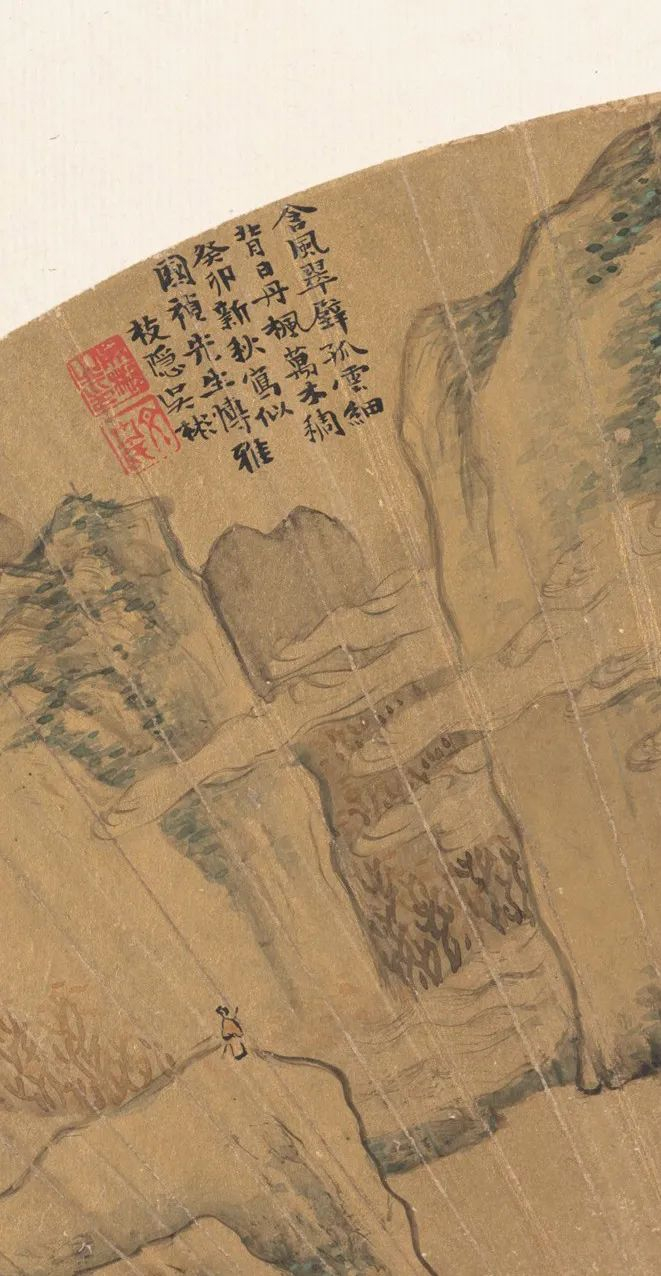 含風翠壁孤雲細
背日丹楓萬木稠
癸卯新秋寫似
國禎先生博雅
枝隱吳彬